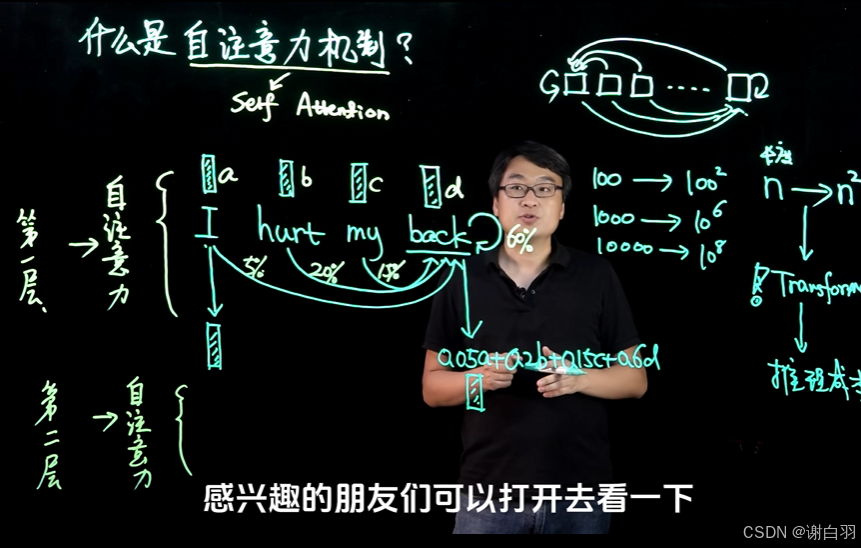 什么是自注意力机制?
Self Attention
a b c d
I hurt my back
5% 20% 15% 60%
0.05a+0.2b+0.15c+0.6d
第一层
自注意力
第二层
自注意力
100 → 100²
1000 → 10⁶
10000 → 10⁸
n → n²
Transforme
推理成本
感兴趣的朋友们可以打开去看一下
CSDN @谢白羽